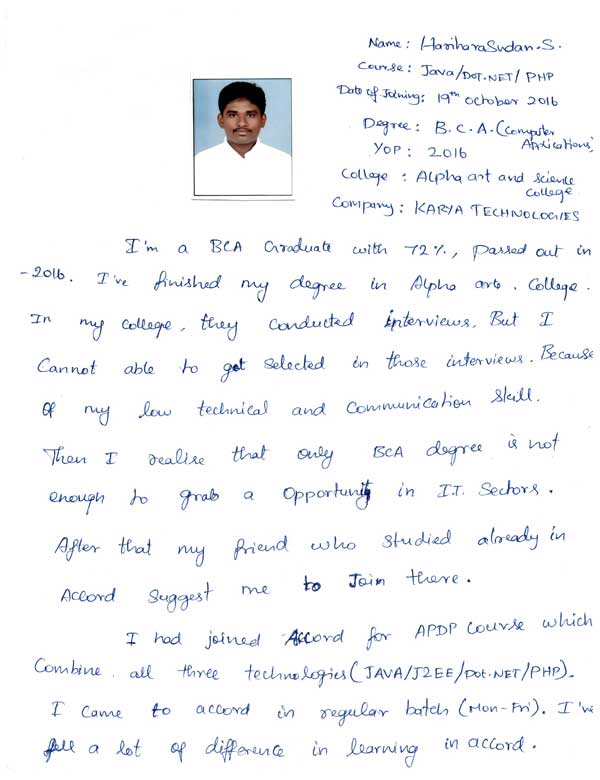 Name : HariharaSudan.S.
Course : Java/DOT.NET/ PHP
Date of Joining: 19th october 2016
Degree : B.C.A. (Computer
Applications)
YOP : 2016
College : Alpha art and science
College
Company : KARYA TECHNOLOGIES
I'm a BCA Graduate with 72%, passed out in
-2016. I've finished my degree in Alpha arts. College.
In my college, they conducted interviews. But I
Cannot able to get selected in those interviews. Because
of my low technical and communication skill.
Then I realise that only BCA degree is not
enough to grab a opportunity in I.T. Sectors.
After that my friend who studied already in
Accord suggest me to Join there.
I had joined Accord for APDP course which
Combine all three technologies (JAVA/J2EE/DOT.NET/PHP).
I came to accord in regular batch (Mon-Fri). I've
a lot of difference in learning in accord.